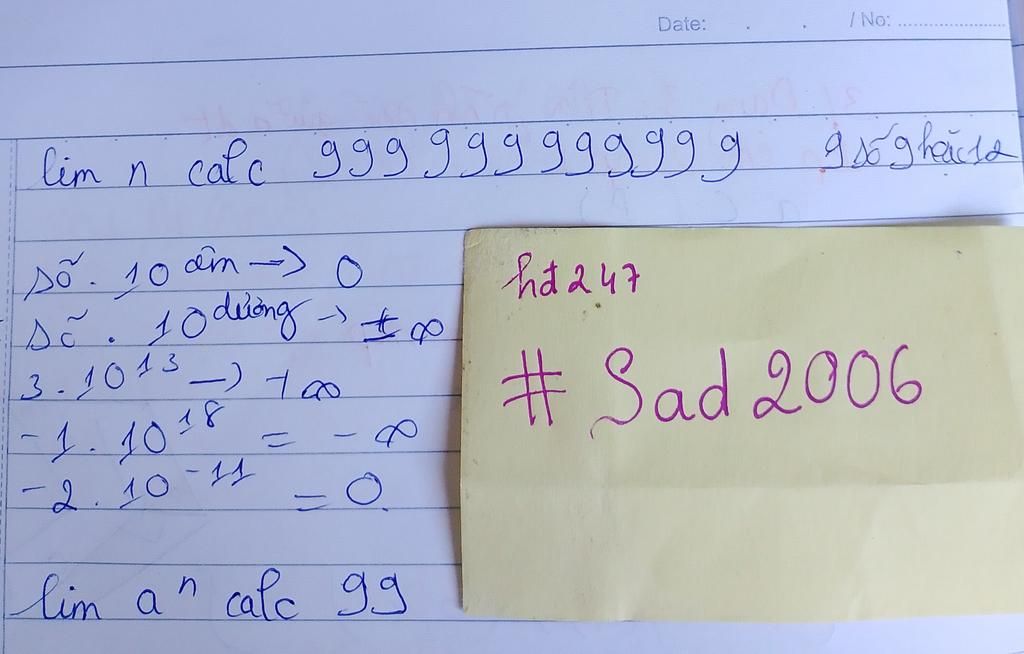 Date: . . / No: ....................
lim n calc 999 999999999 9 số 9 hoặc 12
Số . 10^âm -> 0
Số . 10^dương -> ± ∞
3 . 10^13 -> + ∞
-1 . 10^18 = - ∞
-2 . 10^-11 = 0.
lim a^n calc 99
hđ247
# Sad 2006